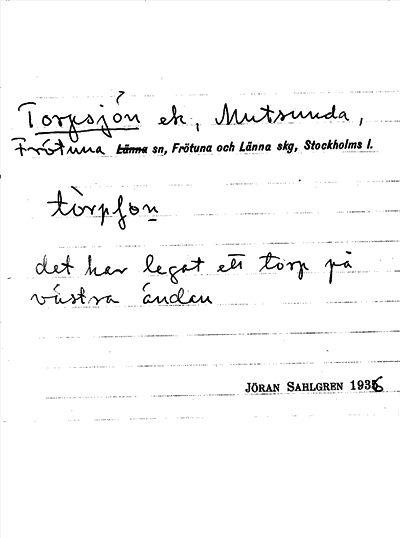 Torpsjön ek, Mutsunda,
Frötuna Länna sn, Frötuna och Länna skg, Stockholms l.
tòrpʃo̱n
det har legat ett torp på
västra ändan
JÖRAN SAHLGREN 1936